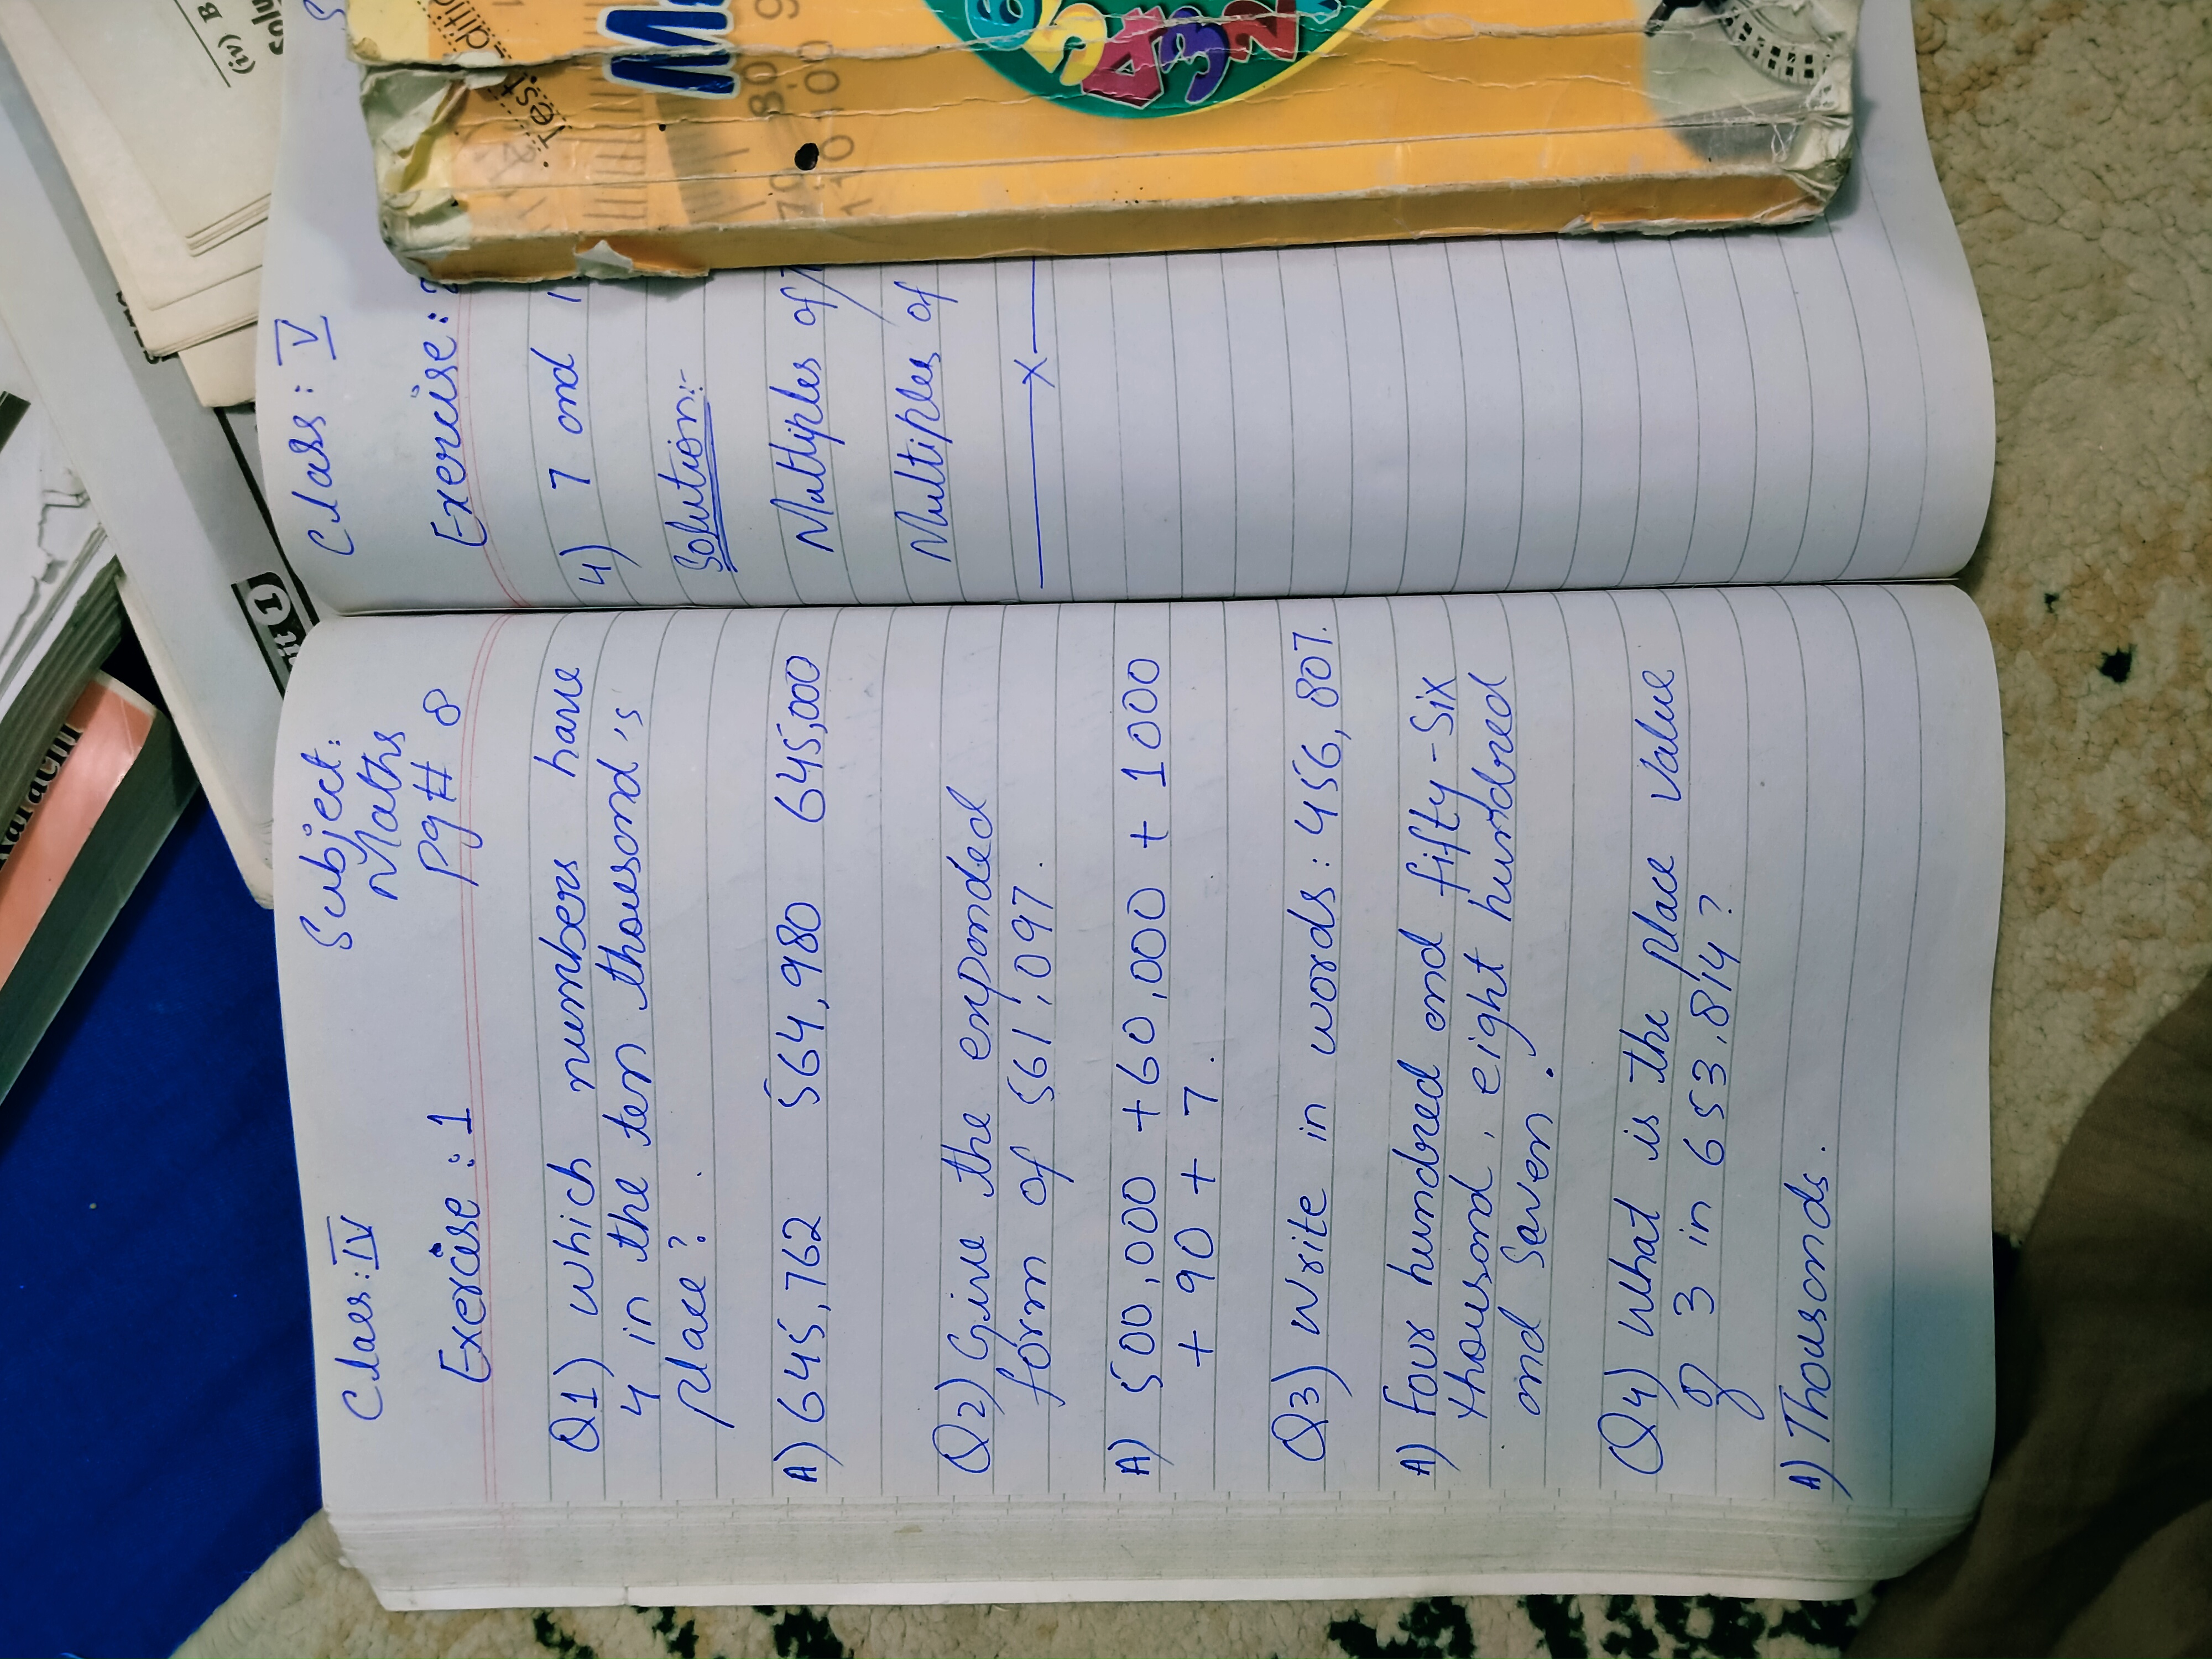 Karachi
Unit 1
(iv) B
Solu
Class: IV
Subject:
Maths
Exercise : 1
Pg# 8
Q1) Which numbers have
4 in the ten thousand's
place?
A) 645,762 564,980 645,000
Q2) Give the expanded
form of 561,097.
A) 500,000 + 60,000 + 1000
+ 90 + 7.
Q3) Write in words: 456,807.
A) Four hundred and fifty-Six
thousand, eight hundred
and Seven.
Q4) What is the place Value
of 3 in 653,814?
A) Thousands.
Class: V
Exercise:
4) 7 and 1
Solution:-
Multiples of
Multiples of
x
Test Editio
Ma
70 80 9
110 100
6
5
4
3
2